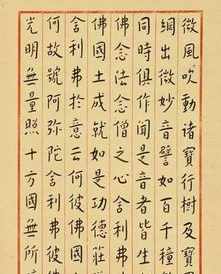 微風吹動諸寶行樹及寶
網出微妙音譬如百千種
同時俱作聞是音者皆生
佛念法念僧之心舍利弗
佛國土成就如是功德莊
舍利弗於意云何彼佛
何故號阿彌陀舍利弗彼佛
光明無量照十方國無所